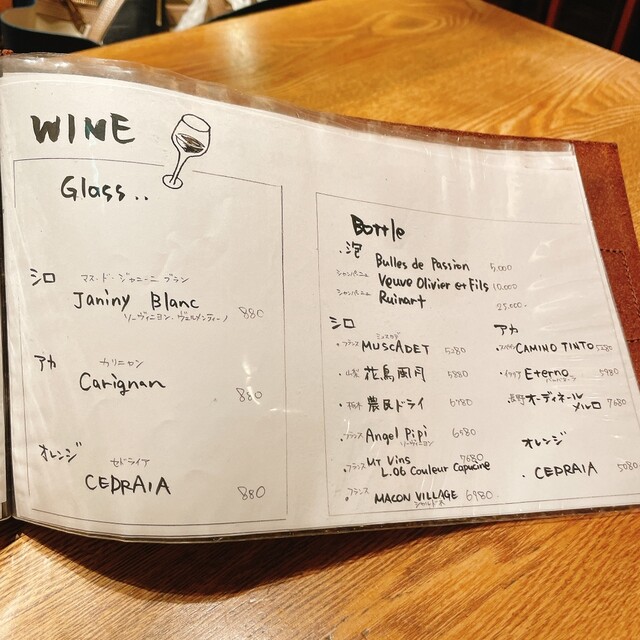 WINE
Glass..
シロ
マス・ド・ジャニーニ ブラン
Janiny Blanc 880
ソーヴィニヨン・ヴェルメンティーノ
アカ
カリニャン
Carignan 880
オレンジ
セドライア
CEDRAIA 880
Bottle
・泡
Bulles de Passion 5,000
シャンパーニュ Veuve Olivier et Fils 10,000
シャンパーニュ Ruinart 25,000.
シロ
ミュスカデ
・フランス MUSCADET 5280
・山梨 花鳥風月 5880
・栃木 農民ドライ 6780
・フランス Angel Pipi 6580
ソーヴィニヨン
・フランス MT Vins 7680
L.06 Couleur Capucine
・フランス MACON VILLAGE 6980
シャルドネ
アカ
・スペイン CAMINO TINTO 5280
・イタリア Eterno 5980
・長野 オーディネール 7680
メルロ
オレンジ
・CEDRAIA 5080